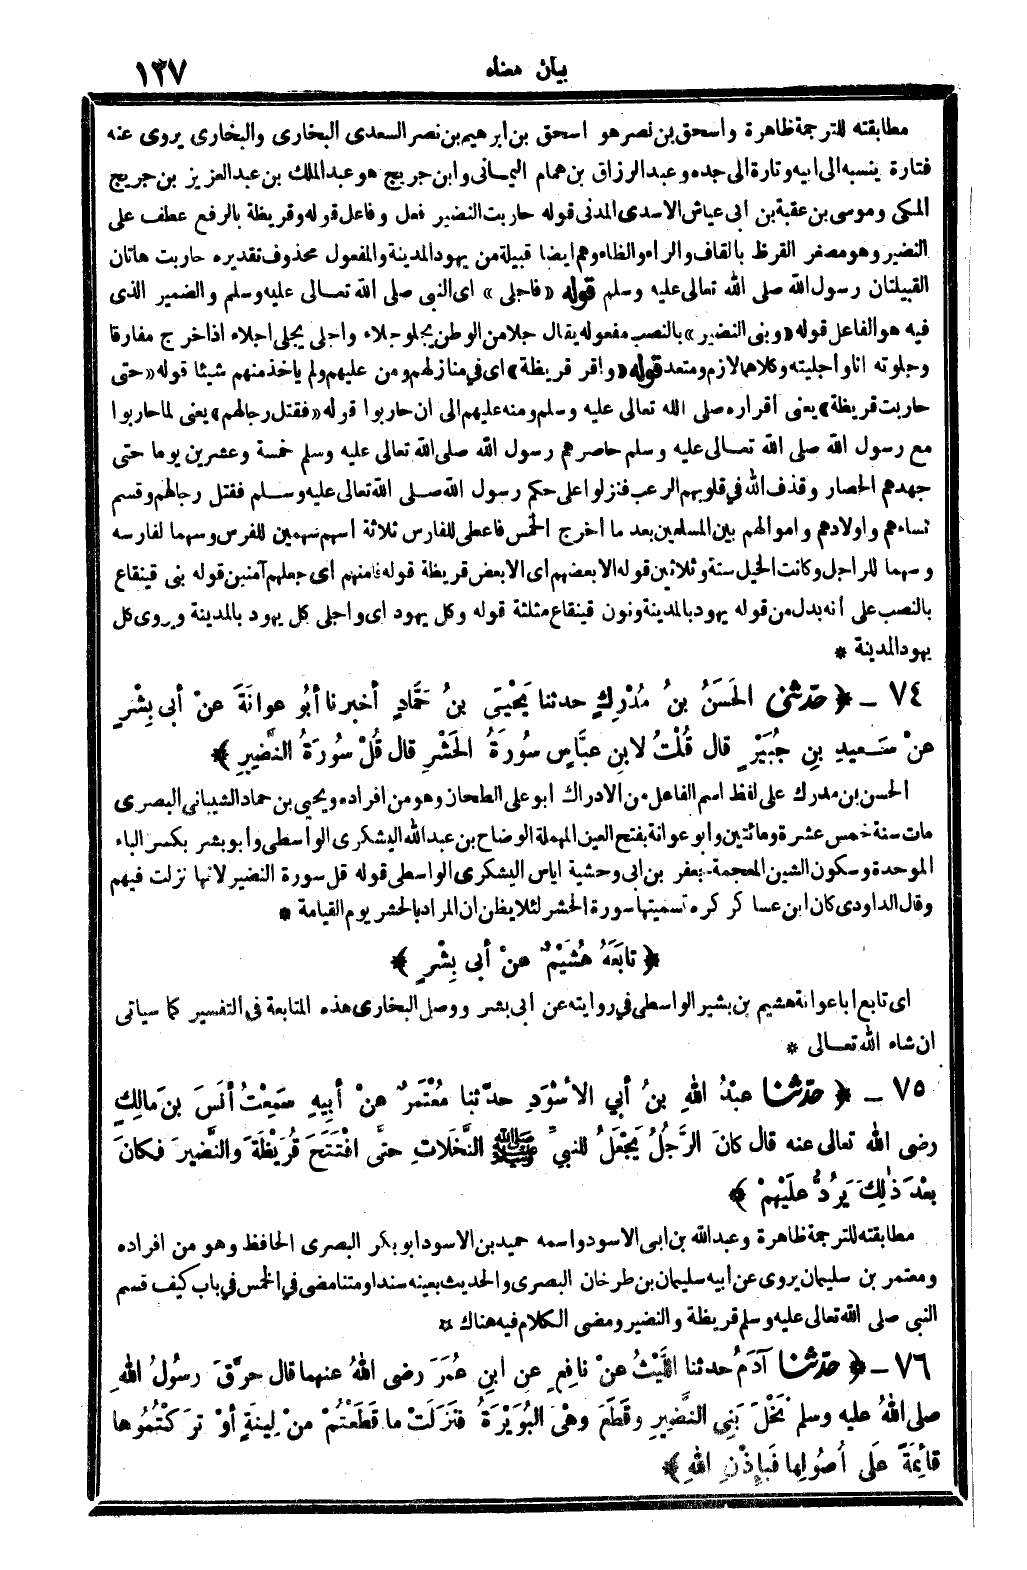 بيان معناه ١٢٧
مطابقته للترجمة ظاهرة واسحق بن نصر هو اسحق بن ابرهيم بن نصر السعدى البخارى والبخارى يروى عنه
فتارة ينسبه الى ابيه وتارة الى جده وعبد الرزاق بن همام اليمانى وابن جريج هو عبد الملك بن عبد العزيز بن جريج
المكى وموسى بن عقبة بن ابى عياش الاسدى المدنى قوله حاربت النضير فعل وفاعل قوله وقريظة بالرفع عطف على
النضير وهو مصغر القرظ بالقاف والراء والظاء وهم ايضا قبيلة من يهود المدينة والمفعول محذوف تقديره حاربت هاتان
القبيلتان رسول الله صلى الله تعالى عليه وسلم قوله «فاجلى» اى النبى صلى الله تعالى عليه وسلم والضمير الذى
فيه هو الفاعل قوله «وبنى النضير» بالنصب مفعوله يقال جلا من الوطن يجلو جلاء واجلى يجلى اجلاء اذا خرج مفارقا
وجلوته انا واجليته وكلاهما لازم ومتعد قوله «واقر قريظة» اى فى منازلهم ومن عليهم ولم ياخذ منهم شيئا قوله «حتى
حاربت قريظة» يعنى أقراره صلى الله تعالى عليه وسلم ومنه عليهم الى ان حاربوا قوله «فقتل رجالهم» يعنى لما حاربوا
مع رسول الله صلى الله تعالى عليه وسلم حاصرهم رسول الله صلى الله تعالى عليه وسلم خمسة وعشرين يوما حتى
جهدهم الحصار وقذف الله فى قلوبهم الرعب فنزلوا على حكم رسول الله صلى الله تعالى عليه وسلم فقتل رجالهم وقسم
نساءهم واولادهم واموالهم بين المسلمين بعد ما اخرج الخمس فاعطى للفارس ثلاثة اسهم سهمين للفرس وسهما لفارسه
وسهما للراجل وكانت الخيل ستة وثلاثين قوله الا بعضهم اى الا بعض قريظة قوله فامنهم اى جعلهم آمنين قوله بنى قينقاع
بالنصب على أنه بدل من قوله يهود بالمدينة ونون قينقاع مثلثة قوله وكل يهود اى واجلى كل يهود بالمدينة ويروى كل
يهود المدينة *
٧٤ ـ ﴿ حَدَّثَنِى الحَسَنُ بنُ مُدْرِكٍ حدثنا يَحْيَى بنُ حَمَّادٍ أخبرنا أبُو عوانَةَ عنْ أبى بِشْرٍ
عنْ سَعيدِ بنِ جُبَيْرٍ قال قُلْتُ لابنِ عبَّاسٍ سُورَةُ الحَشْرِ قال قُلْ سُورَةُ النَّضِيرِ ﴾
الحسن بن مدرك على لفظ اسم الفاعل من الادراك ابو على الطحان وهو من افراده ويحيى بن حماد الشيبانى البصرى
مات سنة خمس عشرة ومائتين وابو عوانة بفتح العين المهملة الوضاح بن عبدالله اليشكرى الواسطى وابو بشر بكسر الباء
الموحدة وسكون الشين المعجمة جعفر بن ابى وحشية اياس اليشكرى الواسطى قوله قل سورة النضير لانها نزلت فيهم
وقال الداودى كان ابن عساكر كره تسميتها سورة الحشر لئلا يظن ان المراد بالحشر يوم القيامة *
﴿ تابَعَهُ هُشَيْمٌ عنْ أبى بِشْرٍ ﴾
اى تابع ابا عوانة هشيم بن بشير الواسطى فى روايته عن ابى بشر ووصل البخارى هذه المتابعة فى التفسير كما سياتى
ان شاء الله تعالى *
٧٥ ـ ﴿ حَدَّثَنَا عبْدُ اللهِ بنُ أبِي الأسْوَدِ حدّثنا مُعْتَمرٌ عنْ أبِيهِ سَمِعْتُ أنَسَ بنَ مالِكٍ
رضى الله تعالى عنه قال كانَ الرَّجُلُ يَجْعَلُ للنبيِّ ﷺ النَّخَلاتِ حتَّى افْتَتَحَ قُرَيْظَةَ والنَّضِيرَ فكانَ
بعْدَ ذٰلِكَ يَرُدُّ علَيْهِمْ ﴾
مطابقته للترجمة ظاهرة وعبدالله بن ابى الاسود واسمه حميد بن الاسود ابو بكر البصرى الحافظ وهو من افراده
ومعتمر بن سليمان يروى عن ابيه سليمان بن طرخان البصرى والحديث بعينه سندا ومتنا مضى فى الخمس فى باب كيف قسم
النبى صلى الله تعالى عليه وسلم قريظة والنضير ومضى الكلام فيه هناك *
٧٦ ـ ﴿ حَدَّثَنَا آدَمُ حدثنا اللَّيْثُ عنْ نافِعٍ عن ابنِ عُمَرَ رضى اللهُ عنهما قال حرَّقَ رسُولُ اللهِ
صلى اللهُ عليه وسلم نَخْلَ بَنِي النَّضِيرِ وقَطَّعَ وهْىَ البُوَيْرَةُ فنَزَلَتْ ما قَطَعْتُمْ منْ لِينَةٍ أوْ تَرَكْتُمُوها
قائِمَةً عَلَى أُصُولِها فَبِإذْنِ اللهِ ﴾